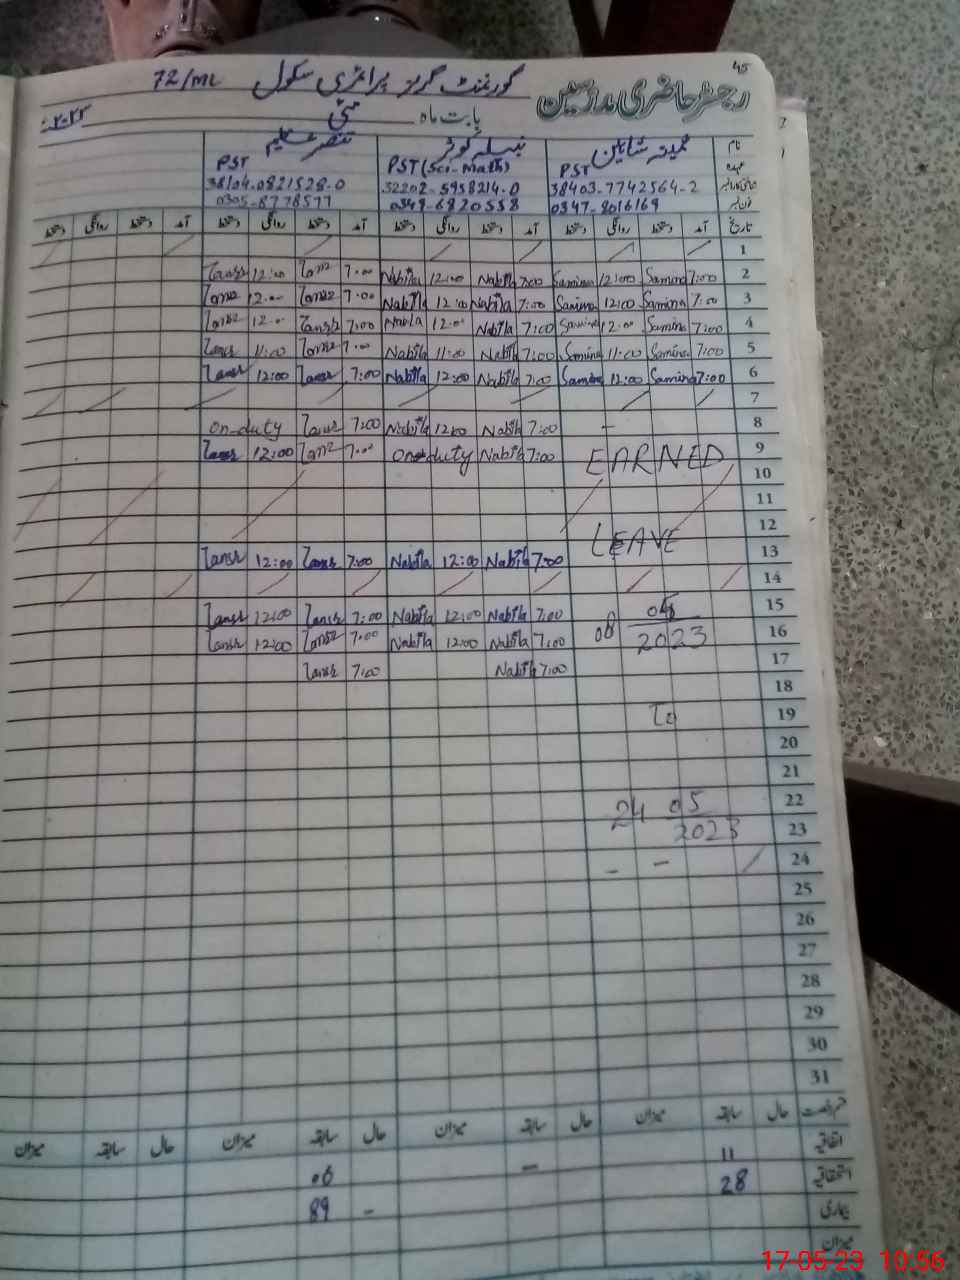 45
رجسٹر حاضری مدرسین گورنمنٹ گرلز پرائمری سکول 72/ML
بابت ماہ مئی ۲۰۲۳ء
نام ثمینہ شاہین نبیلہ کوثر
عہدہ PST PST (Sci-Math) PST
38403-7742564-2 32202-5958214-0 38104-0821528-0
0347-8016169 0349-6820558 0305-8778577
تاریخ آمد دستخط روانگی دستخط آمد دستخط روانگی دستخط آمد دستخط روانگی دستخط آمد دستخط روانگی دستخط
1
2 7:00 Samina 12:00 Samina 7:00 Nabila 12:00 Nabila 7:00 12:00
3 7:00 Samina 12:00 Samina 7:00 Nabila 12:00 Nabila 7:00 12:00
4 7:00 Samina 12:00 Samina 7:00 Nabila 12:00 Nabila 7:00 12:00
5 7:00 Samina 11:00 Samina 7:00 Nabila 11:00 Nabila 7:00 11:00
6 7:00 Samina 12:00 Samina 7:00 Nabila 12:00 Nabila 7:00 12:00
7
8 7:00 Nabila 12:00 Nabila 7:00 on-duty
9 EARNED 7:00 Nabila on-duty 7:00 12:00
10
11
12
LEAVE
13 7:00 Nabila 12:00 Nabila 7:00 12:00
14
15 7:00 Nabila 12:00 Nabila 7:00 12:00
08 05
16 2023 7:00 Nabila 12:00 Nabila 7:00 12:00
17 7:00 Nabila 7:00
18
19 To
20
21
22 24 05
23 2023
24
25
26
27
28
29
30
31
حال سابقہ میزان حال سابقہ میزان حال سابقہ میزان حال سابقہ میزان
اتفاقیہ 11 - 06
استحقاقیہ 28
بیماری - 89
میزان
17-05-23 10:56